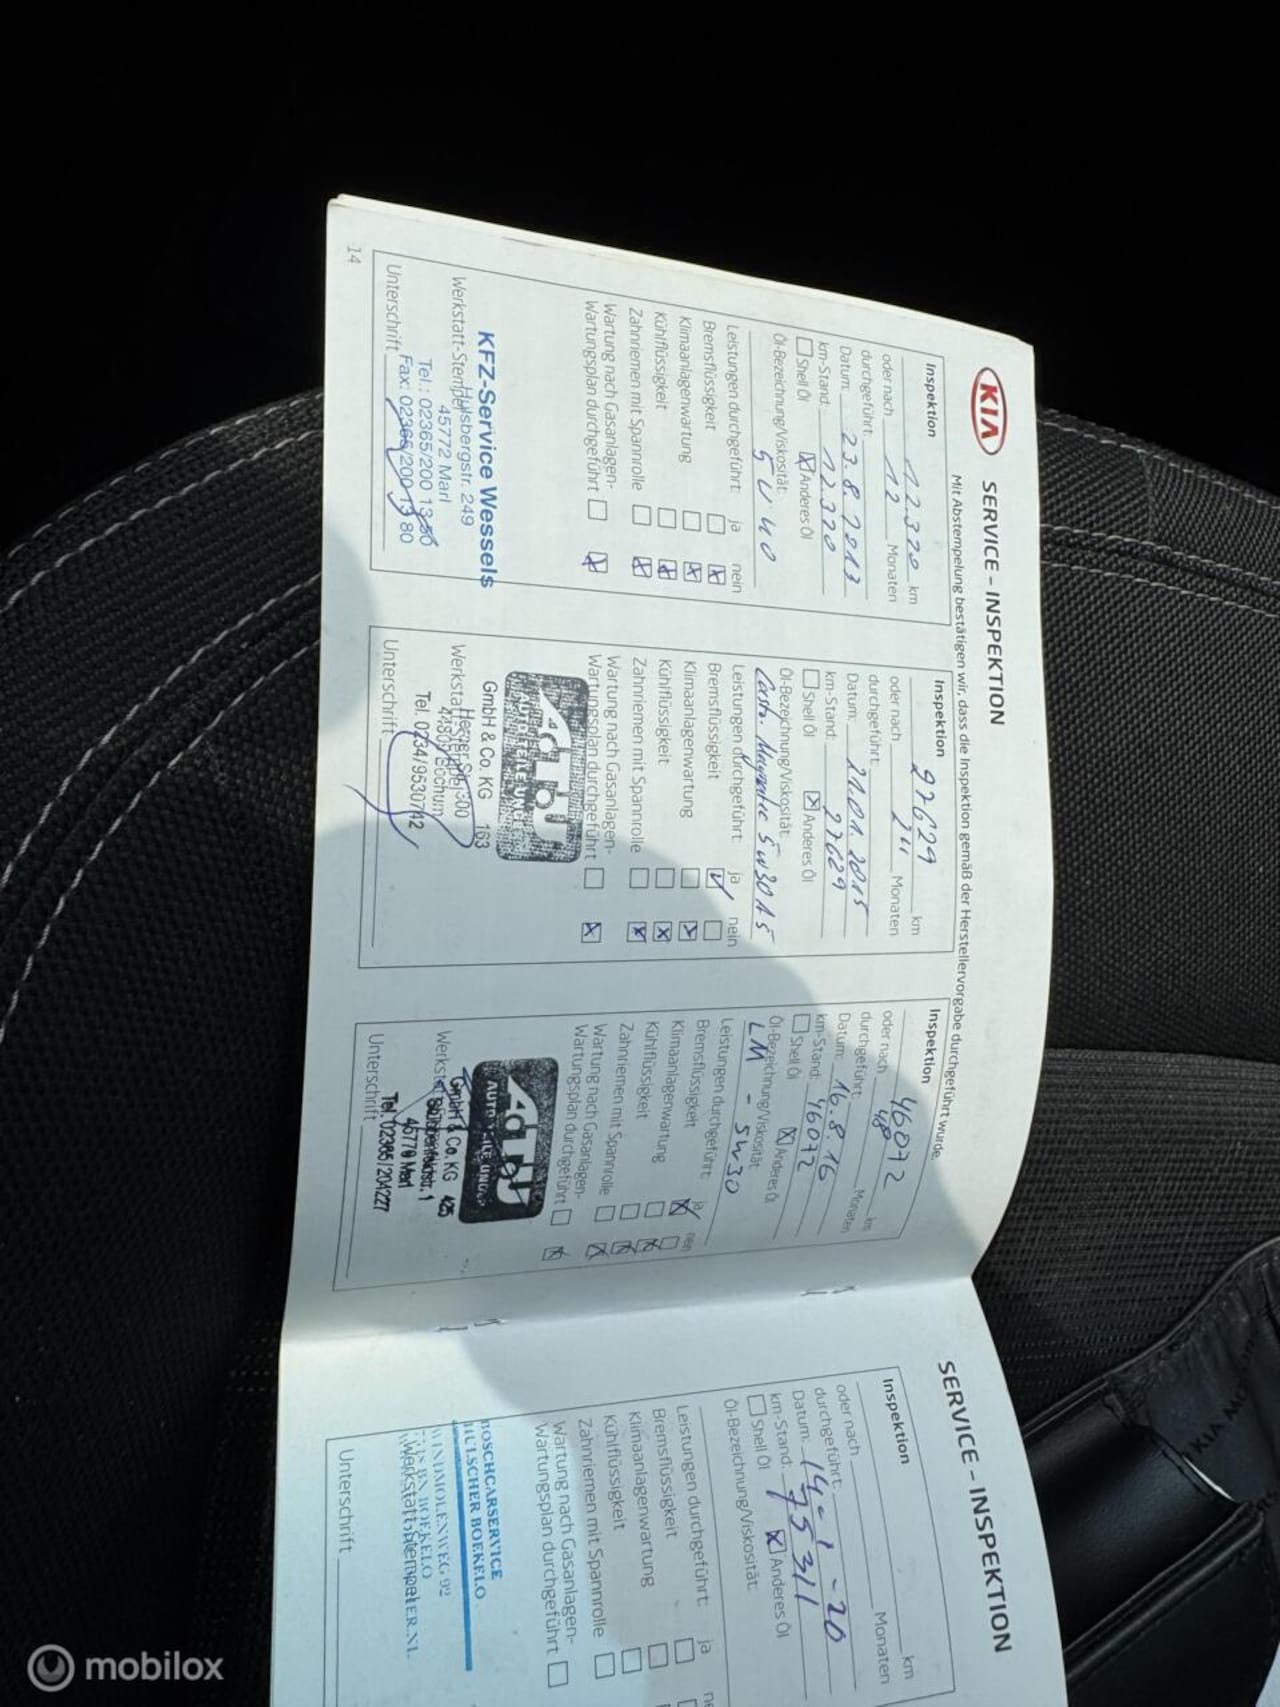 KIA
SERVICE – INSPEKTION
Mit Abstempelung bestätigen wir, dass die Inspektion gemäß der Herstellervorgabe durchgeführt wurde.
Inspektion 12.320 km
oder nach 12 Monaten
durchgeführt:
Datum: 23.8.2013
km-Stand: 12.320
Shell Öl Anderes Öl
Öl-Bezeichnung/Viskosität:
5W40
Leistungen durchgeführt: ja nein
Bremsflüssigkeit
Klimaanlagenwartung
Kühlflüssigkeit
Zahnriemen mit Spannrolle
Wartung nach Gasanlagen-
Wartungsplan durchgeführt
KFZ-Service Wessels
Hülsbergstr. 249
45772 Marl
Werkstatt-Stempel
Tel.: 02365/200 13 50
Fax: 02365/200 13 80
Unterschrift
14
Inspektion 27629 km
oder nach 24 Monaten
durchgeführt:
Datum: 21.01.2015
km-Stand: 27629
Shell Öl Anderes Öl
Öl-Bezeichnung/Viskosität:
Castr. Magnatec 5W30 A5
Leistungen durchgeführt: ja nein
Bremsflüssigkeit
Klimaanlagenwartung
Kühlflüssigkeit
Zahnriemen mit Spannrolle
Wartung nach Gasanlagen-
Wartungsplan durchgeführt
A.T.U
AUTO TEILE UNGER
GmbH & Co. KG 163
Bochum
Tel. 0234/9530742
Unterschrift
Inspektion 46072 km
oder nach 48 Monaten
durchgeführt:
Datum: 16.8.16
km-Stand: 46072
Shell Öl Anderes Öl
Öl-Bezeichnung/Viskosität:
LM - 5W30
Leistungen durchgeführt: ja nein
Bremsflüssigkeit
Klimaanlagenwartung
Kühlflüssigkeit
Zahnriemen mit Spannrolle
Wartung nach Gasanlagen-
Wartungsplan durchgeführt
A.T.U
AUTO TEILE UNGER
GmbH & Co. KG 425
45770 Marl
Tel. 02365/204227
Unterschrift
SERVICE – INSPEKTION
Inspektion km
oder nach Monaten
durchgeführt:
Datum: 14-1-20
km-Stand: 75311
Shell Öl Anderes Öl
Öl-Bezeichnung/Viskosität:
Leistungen durchgeführt: ja
Bremsflüssigkeit
Klimaanlagenwartung
Kühlflüssigkeit
Zahnriemen mit Spannrolle
Wartung nach Gasanlagen-
Wartungsplan durchgeführt
BOSCHCARSERVICE
HULSCHER BOEKELO
WINDMOLENWEG 92
BOEKELO
Werkstatt-Stempel
Unterschrift
KIA
mobilox